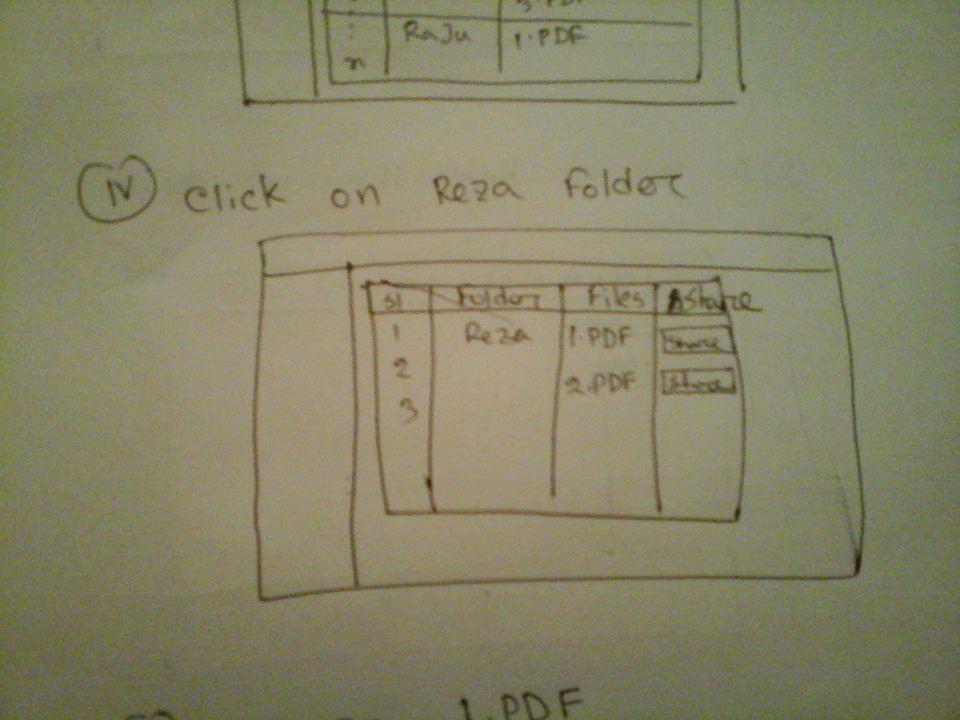 3.PDF
⋮ Raju 1.PDF
n
iv click on Reza folder
sl Folder Files Share
1 Reza 1.PDF Share
2 2.PDF Share
3
1.PDF